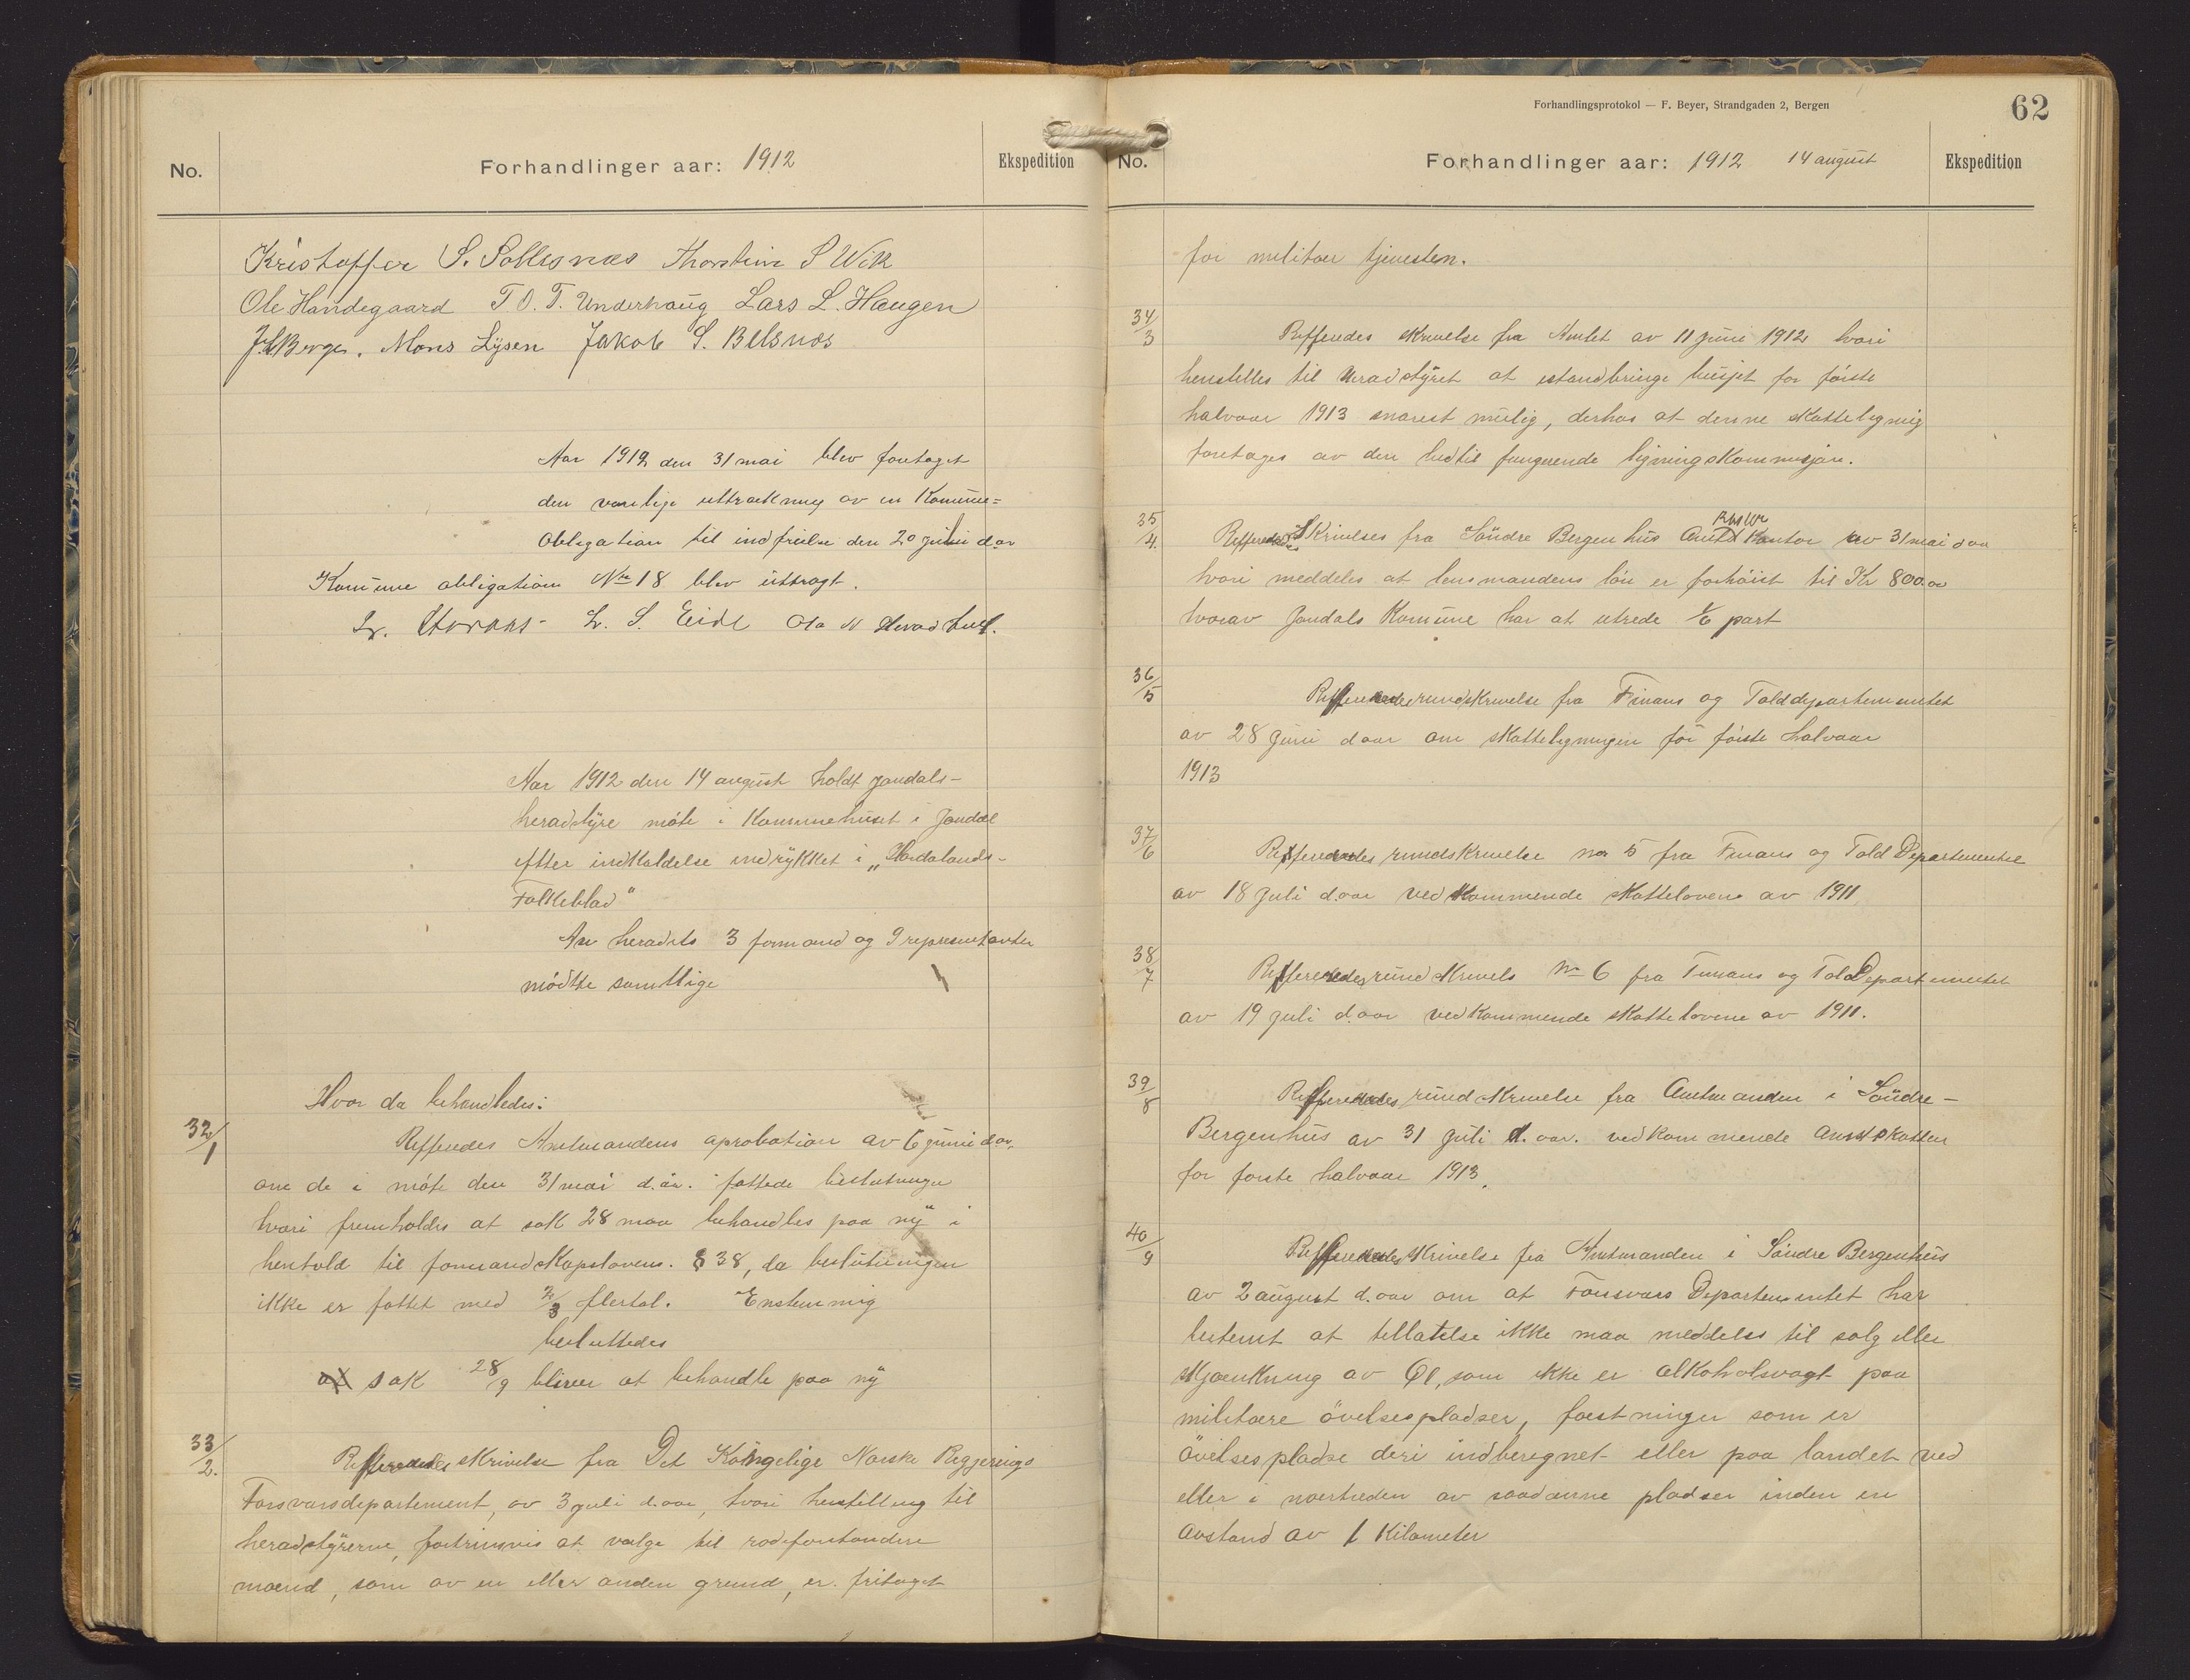 No.
Forhandlinger aar: 1912
Ekspedition
Kristoffer S. Sollesnæs Thorstein S Wik
Ole Handegaard T O. T. Underhaug Lars L. Haugen
Berge. Mons Lysen Jakob S. Belsnæs
Aar 1912 den 31 mai blev foretaget
den vanlige uttrækning av en Komune=
Obligation til indfrielse den 20 juli d.aar
Komune obligation Nr 18 blev uttragt.
L. S. Eide Ola N
Aar 1912 den 14 august holdt Jondals-
heradstyre möte i Kommunehuset i Jondal
efter indkaldelse indrykket i „Hardalands-
Folkeblad"
Av heradets 3 formænd og 9 representanter
mödtte samtlige
Hvor da behandledes:
32/1
Refferedes Amtmandens aprobation av 6 juni d.aar.
om de i möte den 31 mai d.aar. fattede beslutninger
hvori fremholdes at sak 28 maa behandles paa ny i
henhold til formandskapslovens. § 38, da beslutningen
ikke er fattet med 2/3 flertal. Enstemmig
besluttedes
at sak 28/9 bliver at behandle paa ny
33/2.
Refferedes skrivelse fra Det Kongelige Norske Regjerings
Forsvarsdepartement, av 3 juli d.aar, hvori henstilling til
heradstyrerne, fortrinsvis at vælge til rodeforstandere
mænd, som av en eller anden grund, er fritaget
Forhandlingsprotokol — F. Beyer, Strandgaden 2, Bergen
62
No.
Forhandlinger aar: 1912 14 august
Ekspedition
for militær tjenesten.
34/3
Refferedes skrivelse fra Amtet av 11 juni 1912 hvori
henstilles til heradstyret at istandbringe busjet for förste
halvaar 1913 snarest mulig, derhos at denne skatteligning
foretages av den hedtil fungerende ligningskommisjon.
35/4.
Refferedes Skrivelses fra Söndre Bergenhus Amts Kontor av 31 mai d aar
hvori meddeles at lensmandens lön er forhöiet til Kr 800.00
hvorav Jondals Komune har at utrede 1/6 part
36/5
Refferedes rundskrivelse fra Finans og Tolddepartementet
av 28 juni d aar om skatteligningen för förste halvaar
1913
37/6
Refferedes rundskrivelse no 5 fra Finans og Told Departementet
av 18 juli d.aar vedkommende skattelovene av 1911
38/7
Refferedes rundskrivels No 6 fra Finans og Told Departementet
av 19 juli d.aar vedkommende skattelovene av 1911.
39/8
Refferedes rundskrivelse fra Amtmanden i Söndre-
Bergenhus av 31 juli d. aar. vedkommende amtskatten
for förste halvaar 1913.
40/9
Refferedes skrivelse fra Amtmanden i Söndre Bergenhus
av 2 august d.aar om at Forsvars Departementet har
bestemt at tillatelse ikke maa meddeles til salg eller
skjænkning av Öl, som ikke er alkoholsvagt paa
militære övelsespladser, fæstninger som er
övelsespladse deri indberegnet eller paa landet ved
eller i nærheden av saadanne pladser inden en
avstand av 1 Kilometer